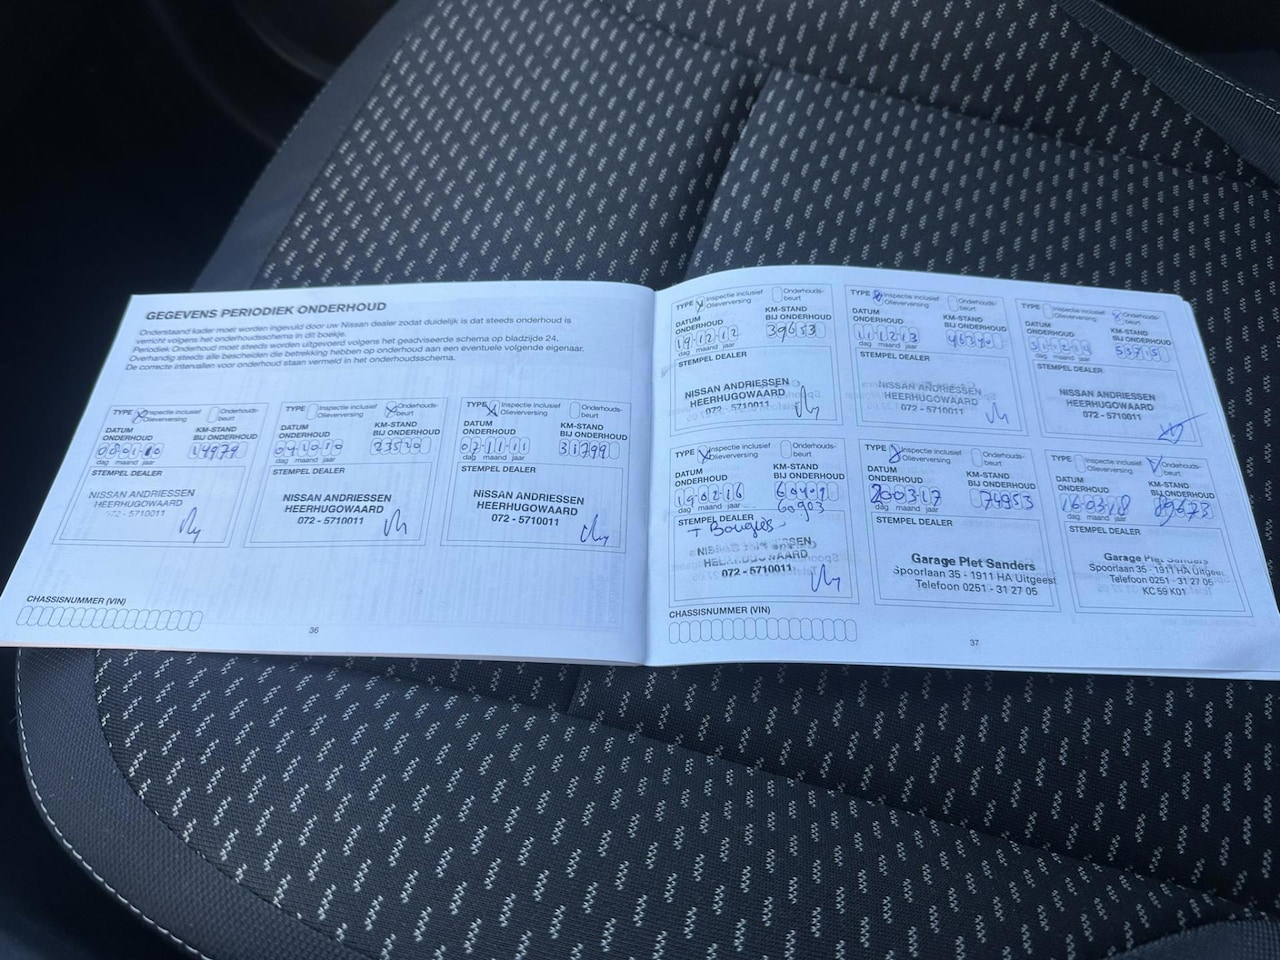 GEGEVENS PERIODIEK ONDERHOUD
Onderstaand kader moet worden ingevuld door uw Nissan dealer zodat duidelijk is dat steeds onderhoud is
verricht volgens het onderhoudsschema in dit boekje.
Periodiek Onderhoud moet steeds worden uitgevoerd volgens het geadviseerde schema op bladzijde 24.
Overhandig steeds alle bescheiden die betrekking hebben op onderhoud aan een eventuele volgende eigenaar.
De correcte intervallen voor onderhoud staan vermeld in het onderhoudsschema.
TYPE Inspectie inclusief Olieverversing Onderhouds-beurt
DATUM ONDERHOUD KM-STAND BIJ ONDERHOUD
14979
dag maand jaar
STEMPEL DEALER
NISSAN ANDRIESSEN
HEERHUGOWAARD
072 - 5710011
TYPE Inspectie inclusief Olieverversing Onderhouds-beurt
DATUM ONDERHOUD KM-STAND BIJ ONDERHOUD
23520
dag maand jaar
STEMPEL DEALER
NISSAN ANDRIESSEN
HEERHUGOWAARD
072 - 5710011
TYPE Inspectie inclusief Olieverversing Onderhouds-beurt
DATUM ONDERHOUD KM-STAND BIJ ONDERHOUD
071111 31799
dag maand jaar
STEMPEL DEALER
NISSAN ANDRIESSEN
HEERHUGOWAARD
072 - 5710011
CHASSISNUMMER (VIN)
36
TYPE Inspectie inclusief Olieverversing Onderhouds-beurt
DATUM ONDERHOUD KM-STAND BIJ ONDERHOUD
191212 39653
dag maand jaar
STEMPEL DEALER
NISSAN ANDRIESSEN
HEERHUGOWAARD
072 - 5710011
TYPE Inspectie inclusief Olieverversing Onderhouds-beurt
DATUM ONDERHOUD KM-STAND BIJ ONDERHOUD
111213 46370
dag maand jaar
STEMPEL DEALER
NISSAN ANDRIESSEN
HEERHUGOWAARD
072 - 5710011
TYPE Inspectie inclusief Olieverversing Onderhouds-beurt
DATUM ONDERHOUD KM-STAND BIJ ONDERHOUD
53715
dag maand jaar
STEMPEL DEALER
NISSAN ANDRIESSEN
HEERHUGOWAARD
072 - 5710011
TYPE Inspectie inclusief Olieverversing Onderhouds-beurt
DATUM ONDERHOUD KM-STAND BIJ ONDERHOUD
190216
dag maand jaar 60903
STEMPEL DEALER
+ Bougies
072 - 5710011
TYPE Inspectie inclusief Olieverversing Onderhouds-beurt
DATUM ONDERHOUD KM-STAND BIJ ONDERHOUD
200317 74953
dag maand jaar
STEMPEL DEALER
Garage Piet Sanders
Spoorlaan 35 - 1911 HA Uitgeest
Telefoon 0251 - 31 27 05
TYPE Inspectie inclusief Olieverversing Onderhouds-beurt
DATUM ONDERHOUD KM-STAND BIJ ONDERHOUD
160318 89673
dag maand jaar
STEMPEL DEALER
Garage Piet Sanders
Spoorlaan 35 - 1911 HA Uitgeest
Telefoon 0251 - 31 27 05
KC 59 K01
CHASSISNUMMER (VIN)
37